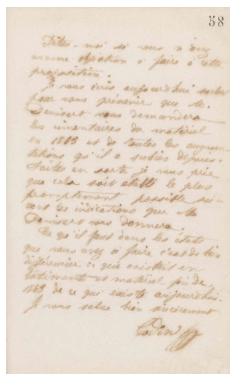 58
Dites-moi si vous n'avez
aucune objection à faire à cette
proposition.
Je vous écris aujourd'hui surtout
pour vous prévenir que M.
Denisart vous demandera
les inventaires du matériel
en 1863 et de toutes les augmen
tations qu'il a subies depuis.
Faites en sorte je vous prie
que cela soit établi le plus
promptement possible sui-
vant les indications que M.
Denisart vous donnera.
Ce qu'il faut dans les états
que vous avez à faire c'est de bien
différencier ce qui existait en
bâtiments et matériel fin de
1863 de ce qui existe aujourd'hui.
Je vous salue bien sincèrement
Godin